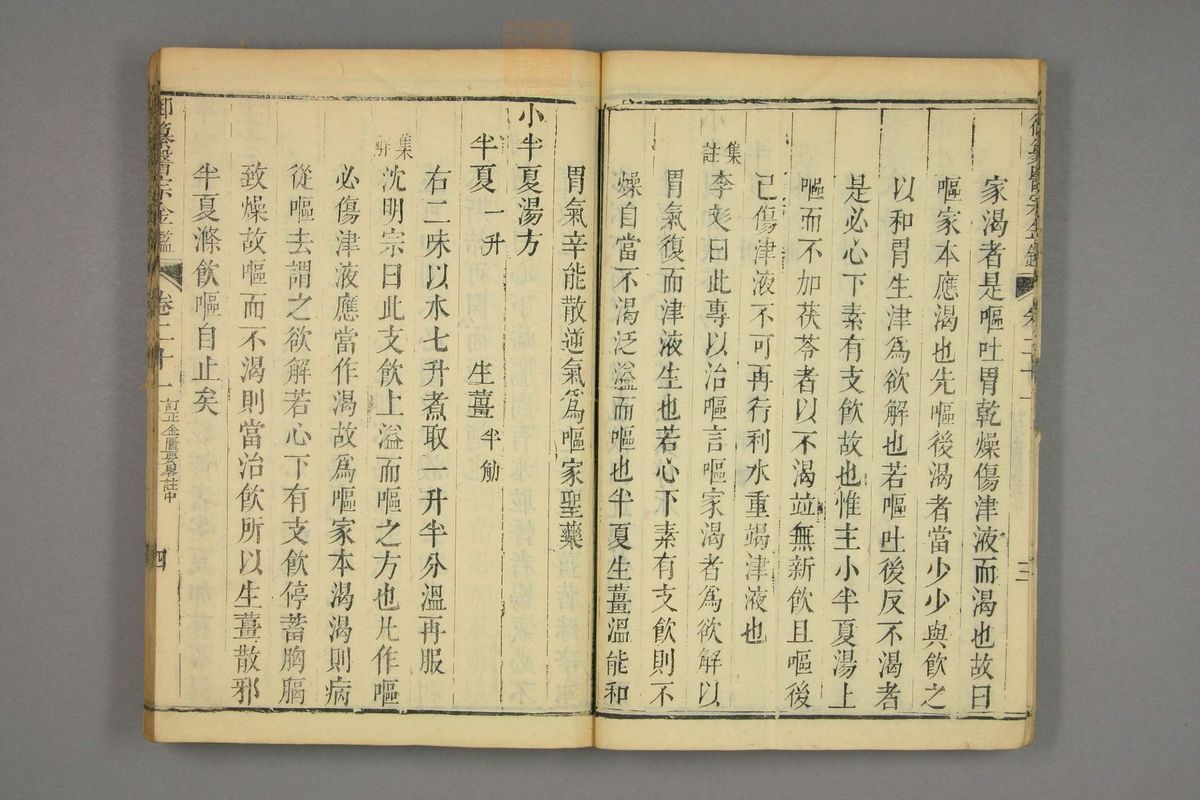 家渴者是嘔吐胃乾燥傷津液而渴也故曰
嘔家本應渴也先嘔後渴者當少少與飲之
以和胃生津爲欲解也若嘔吐後反不渴者
是必心下素有支飲故也惟主小半夏湯上
嘔而不加茯苓者以不渴竝無新飲且嘔後
已傷津液不可再行利水重竭津液也
集註
李彣曰此專以治嘔言嘔家渴者爲欲解以
胃氣復而津液生也若心下素有支飲則不
燥自當不渴泛溢而嘔也半夏生薑溫能和
胃氣辛能散逆氣爲嘔家聖藥
小半夏湯方
半夏一升 生薑半觔
右二味以水七升煮取一升半分溫再服
集解
沈明宗曰此支飲上溢而嘔之方也凡作嘔
必傷津液應當作渴故爲嘔家本渴渴則病
從嘔去謂之欲解若心下有支飲停蓄胸膈
致燥故嘔而不渴則當治飲所以生薑散邪
半夏滌飲嘔自止矣
御纂醫宗金鑑 卷二十一 訂正金匱要畧註中 四